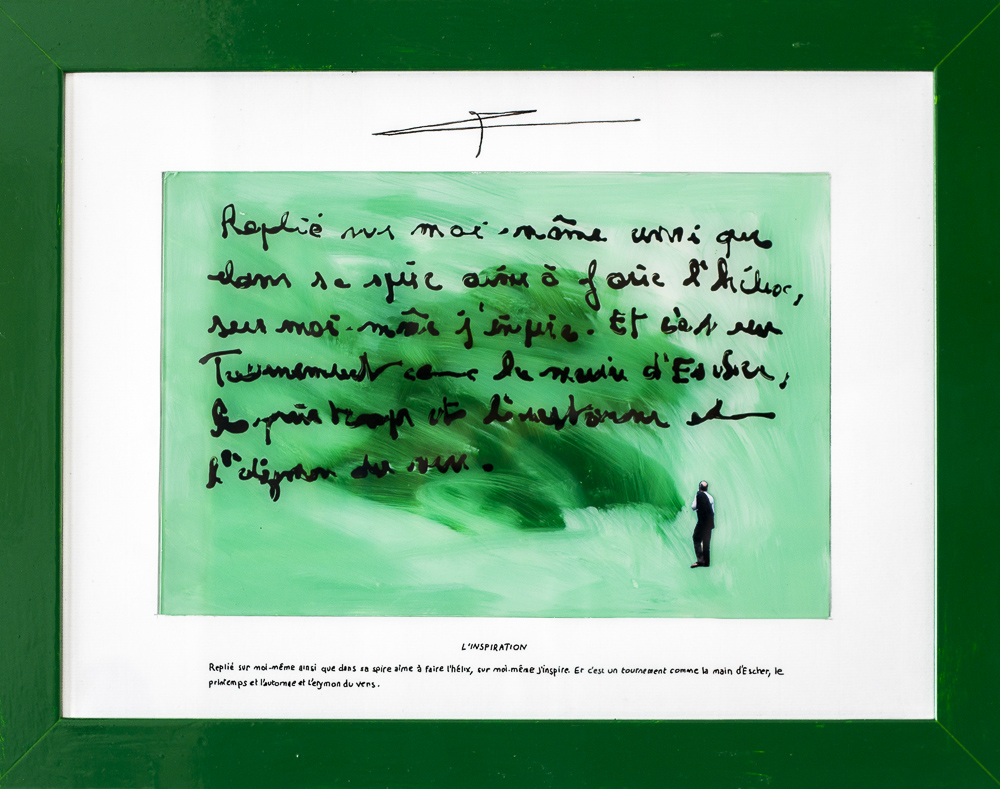 Replié sur moi-même ainsi que
dans sa spire aime à faire l'hélix,
sur moi-même j'inspire. Et c'est un
Tournement comme la main d'Escher,
le printemps et l'automne et
l'étymon du vers.
L'INSPIRATION
Replié sur moi-même ainsi que dans sa spire aime à faire l'hélix, sur moi-même j'inspire. Et c'est un tournement comme la main d'Escher, le
printemps et l'automne et l'etymon du vers.